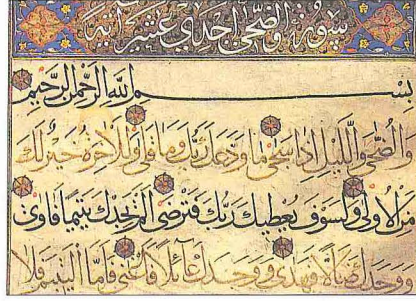 سورة والضحى احدى عشر آية
بسم الله الرحمن الرحيم
والضحى والليل اذا سجى ما ودعك ربك وما قلى وللآخرة خير لك
من الاولى ولسوف يعطيك ربك فترضى الم يجدك يتيما فاوى
ووجدك ضالا فهدى ووجدك عائلا فاغنى فاما اليتيم فلا